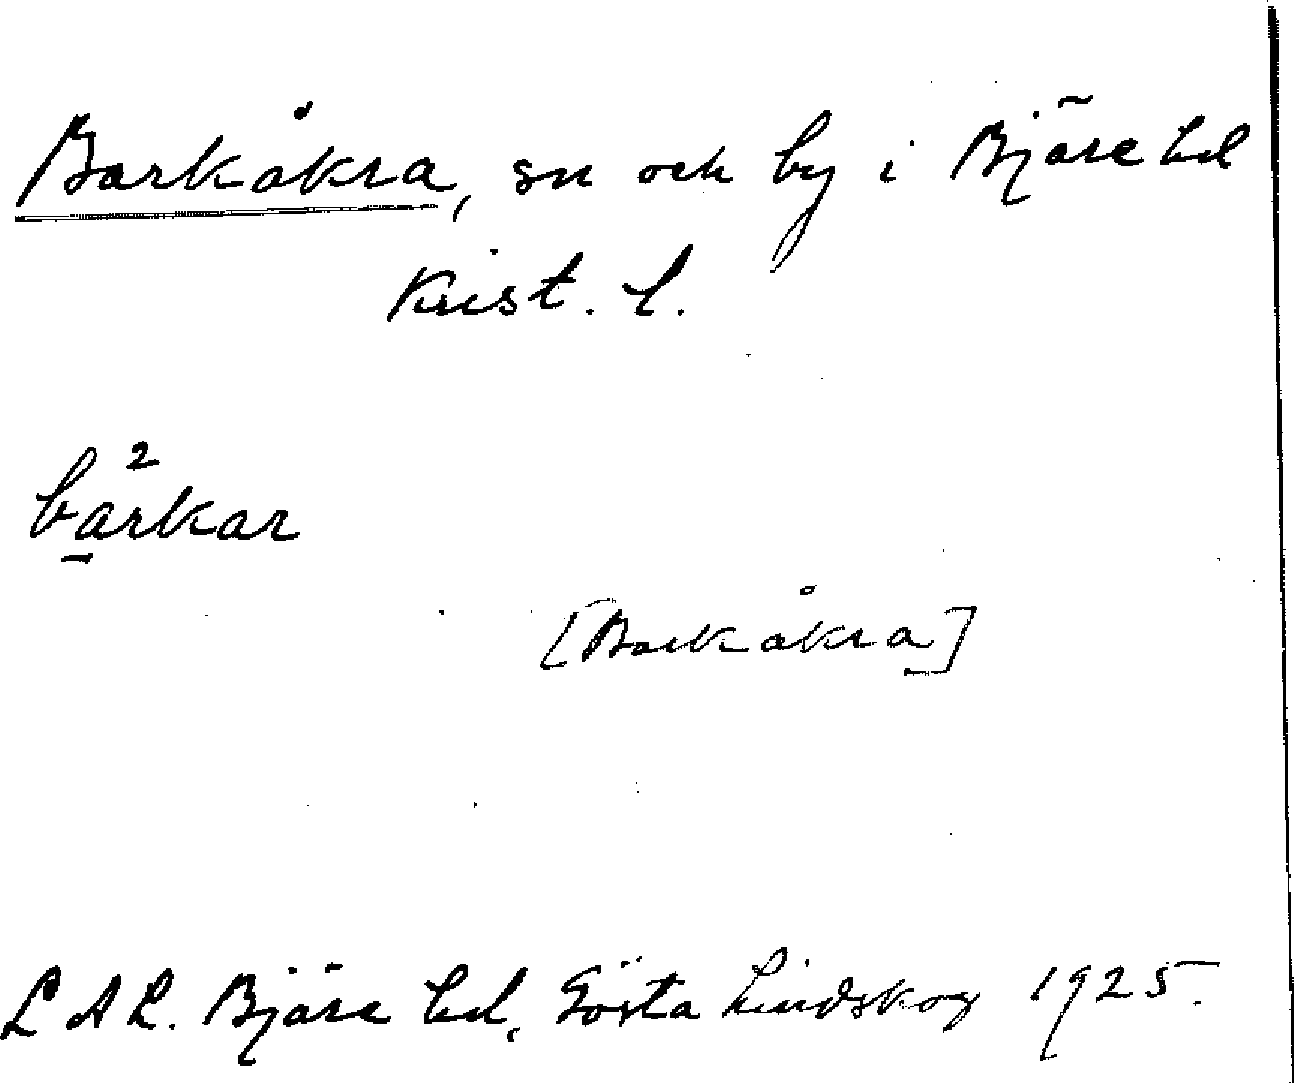 Barkåkra, sn och by i Bjäre hd
Krist. l.
ba̲²rkar
[Barkåkra]
L A L. Bjäre hd, Gösta Lindskog 1925.